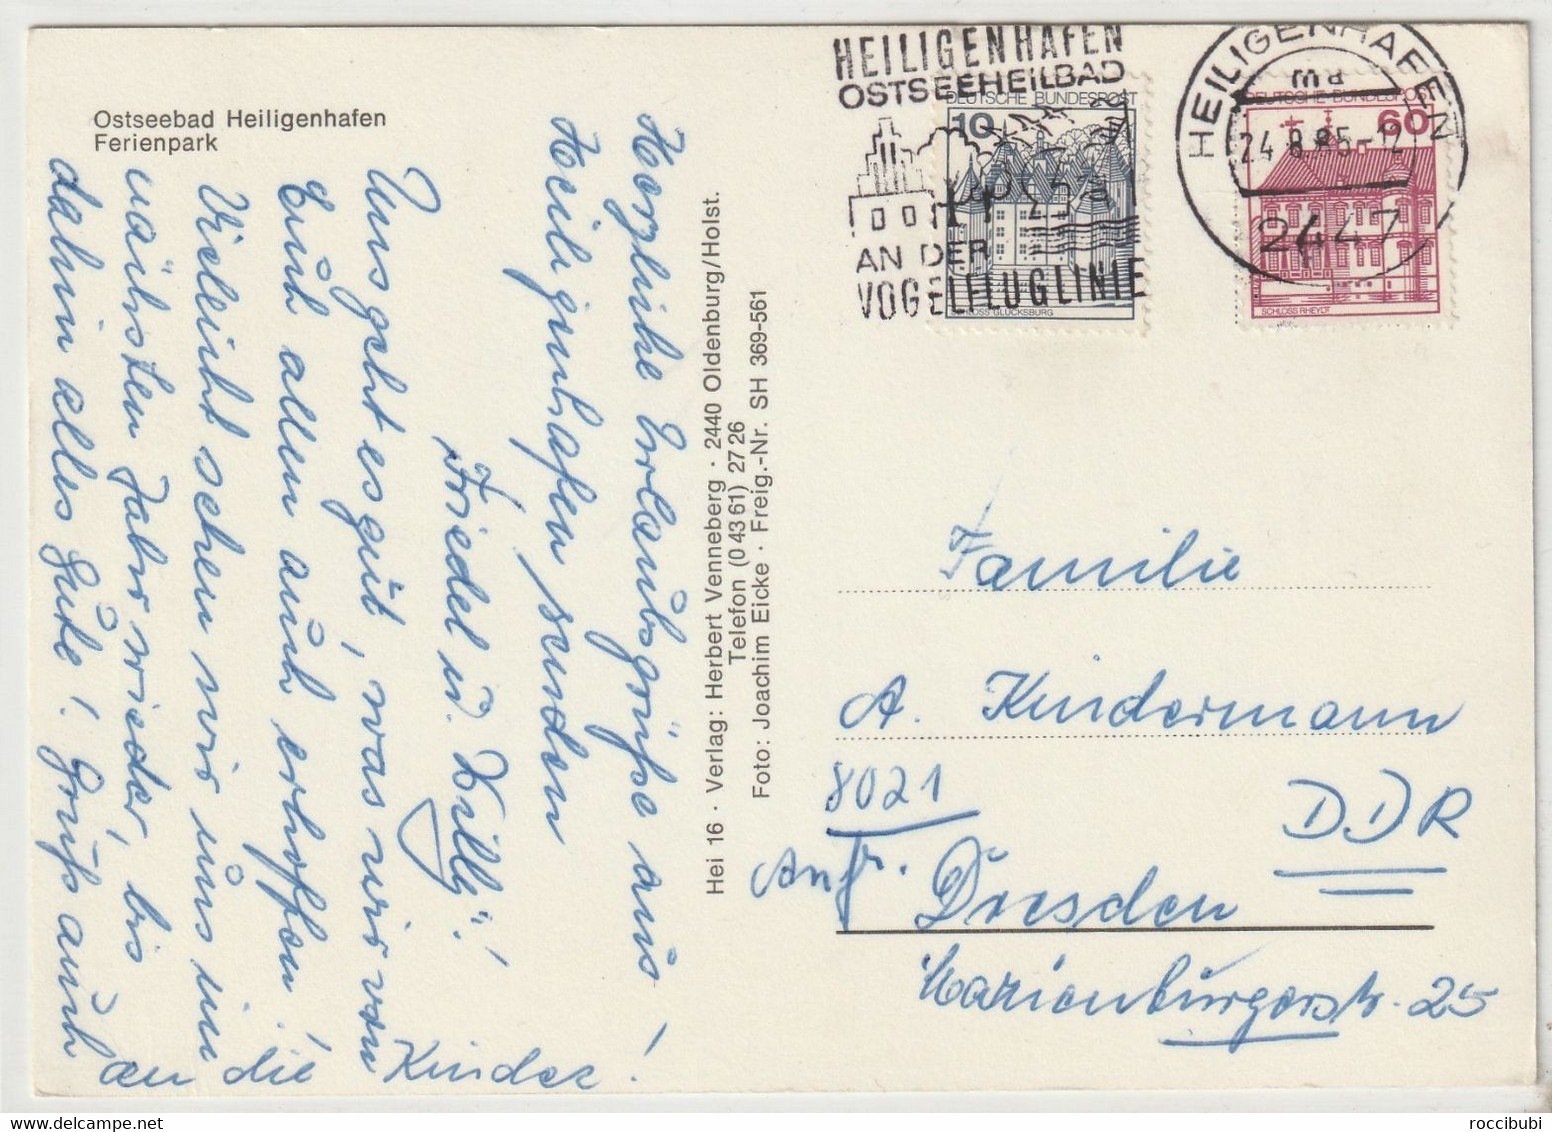 Ostseebad Heiligenhafen
Ferienpark
Herzliche Urlaubsgrüße aus
Heiligenhafen senden
Friedel u. Willy!
Uns geht es gut, was wir von
Euch allen auch erhoffen!
Vieleicht sehen wir uns im
nächsten Jahr wieder, bis
dahin alles Gute! Gruß auch
an die Kinder.
Hei 16 · Verlag: Herbert Venneberg · 2440 Oldenburg/Holst.
Telefon (0 43 61) 27 26
Foto: Joachim Eicke · Freig.-Nr. SH 369-561
HEILIGENHAFEN
OSTSEEHEILBAD
AN DER
VOGELFLUGLINIE
DEUTSCHE BUNDESPOST
10
SCHLOSS GLÜCKSBURG
HEILIGENHAFEN
24.8.85-12
2447
DEUTSCHE BUNDESPOST
60
SCHLOSS RHEYDT
Familie
A. Kindermann
8021
DDR
Dresden
Marienburgerstr. 25
roccibubi